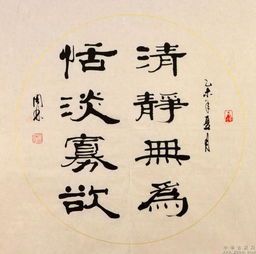 清靜無為
恬淡寡欲
乙未年夏月